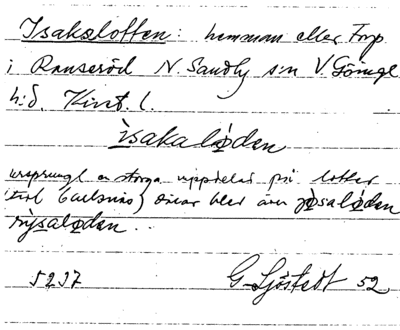 Isakslotten: hemman eller Torp
i Ranseröd N. Sandby sn V. Göinge
h:d. Krist. l.
ìsakalǿden
ursprungl en storga uppdelad på lotter
dvar blev även jǿsalǿden
nìsalǿden..
5237 G Sjöstedt 52